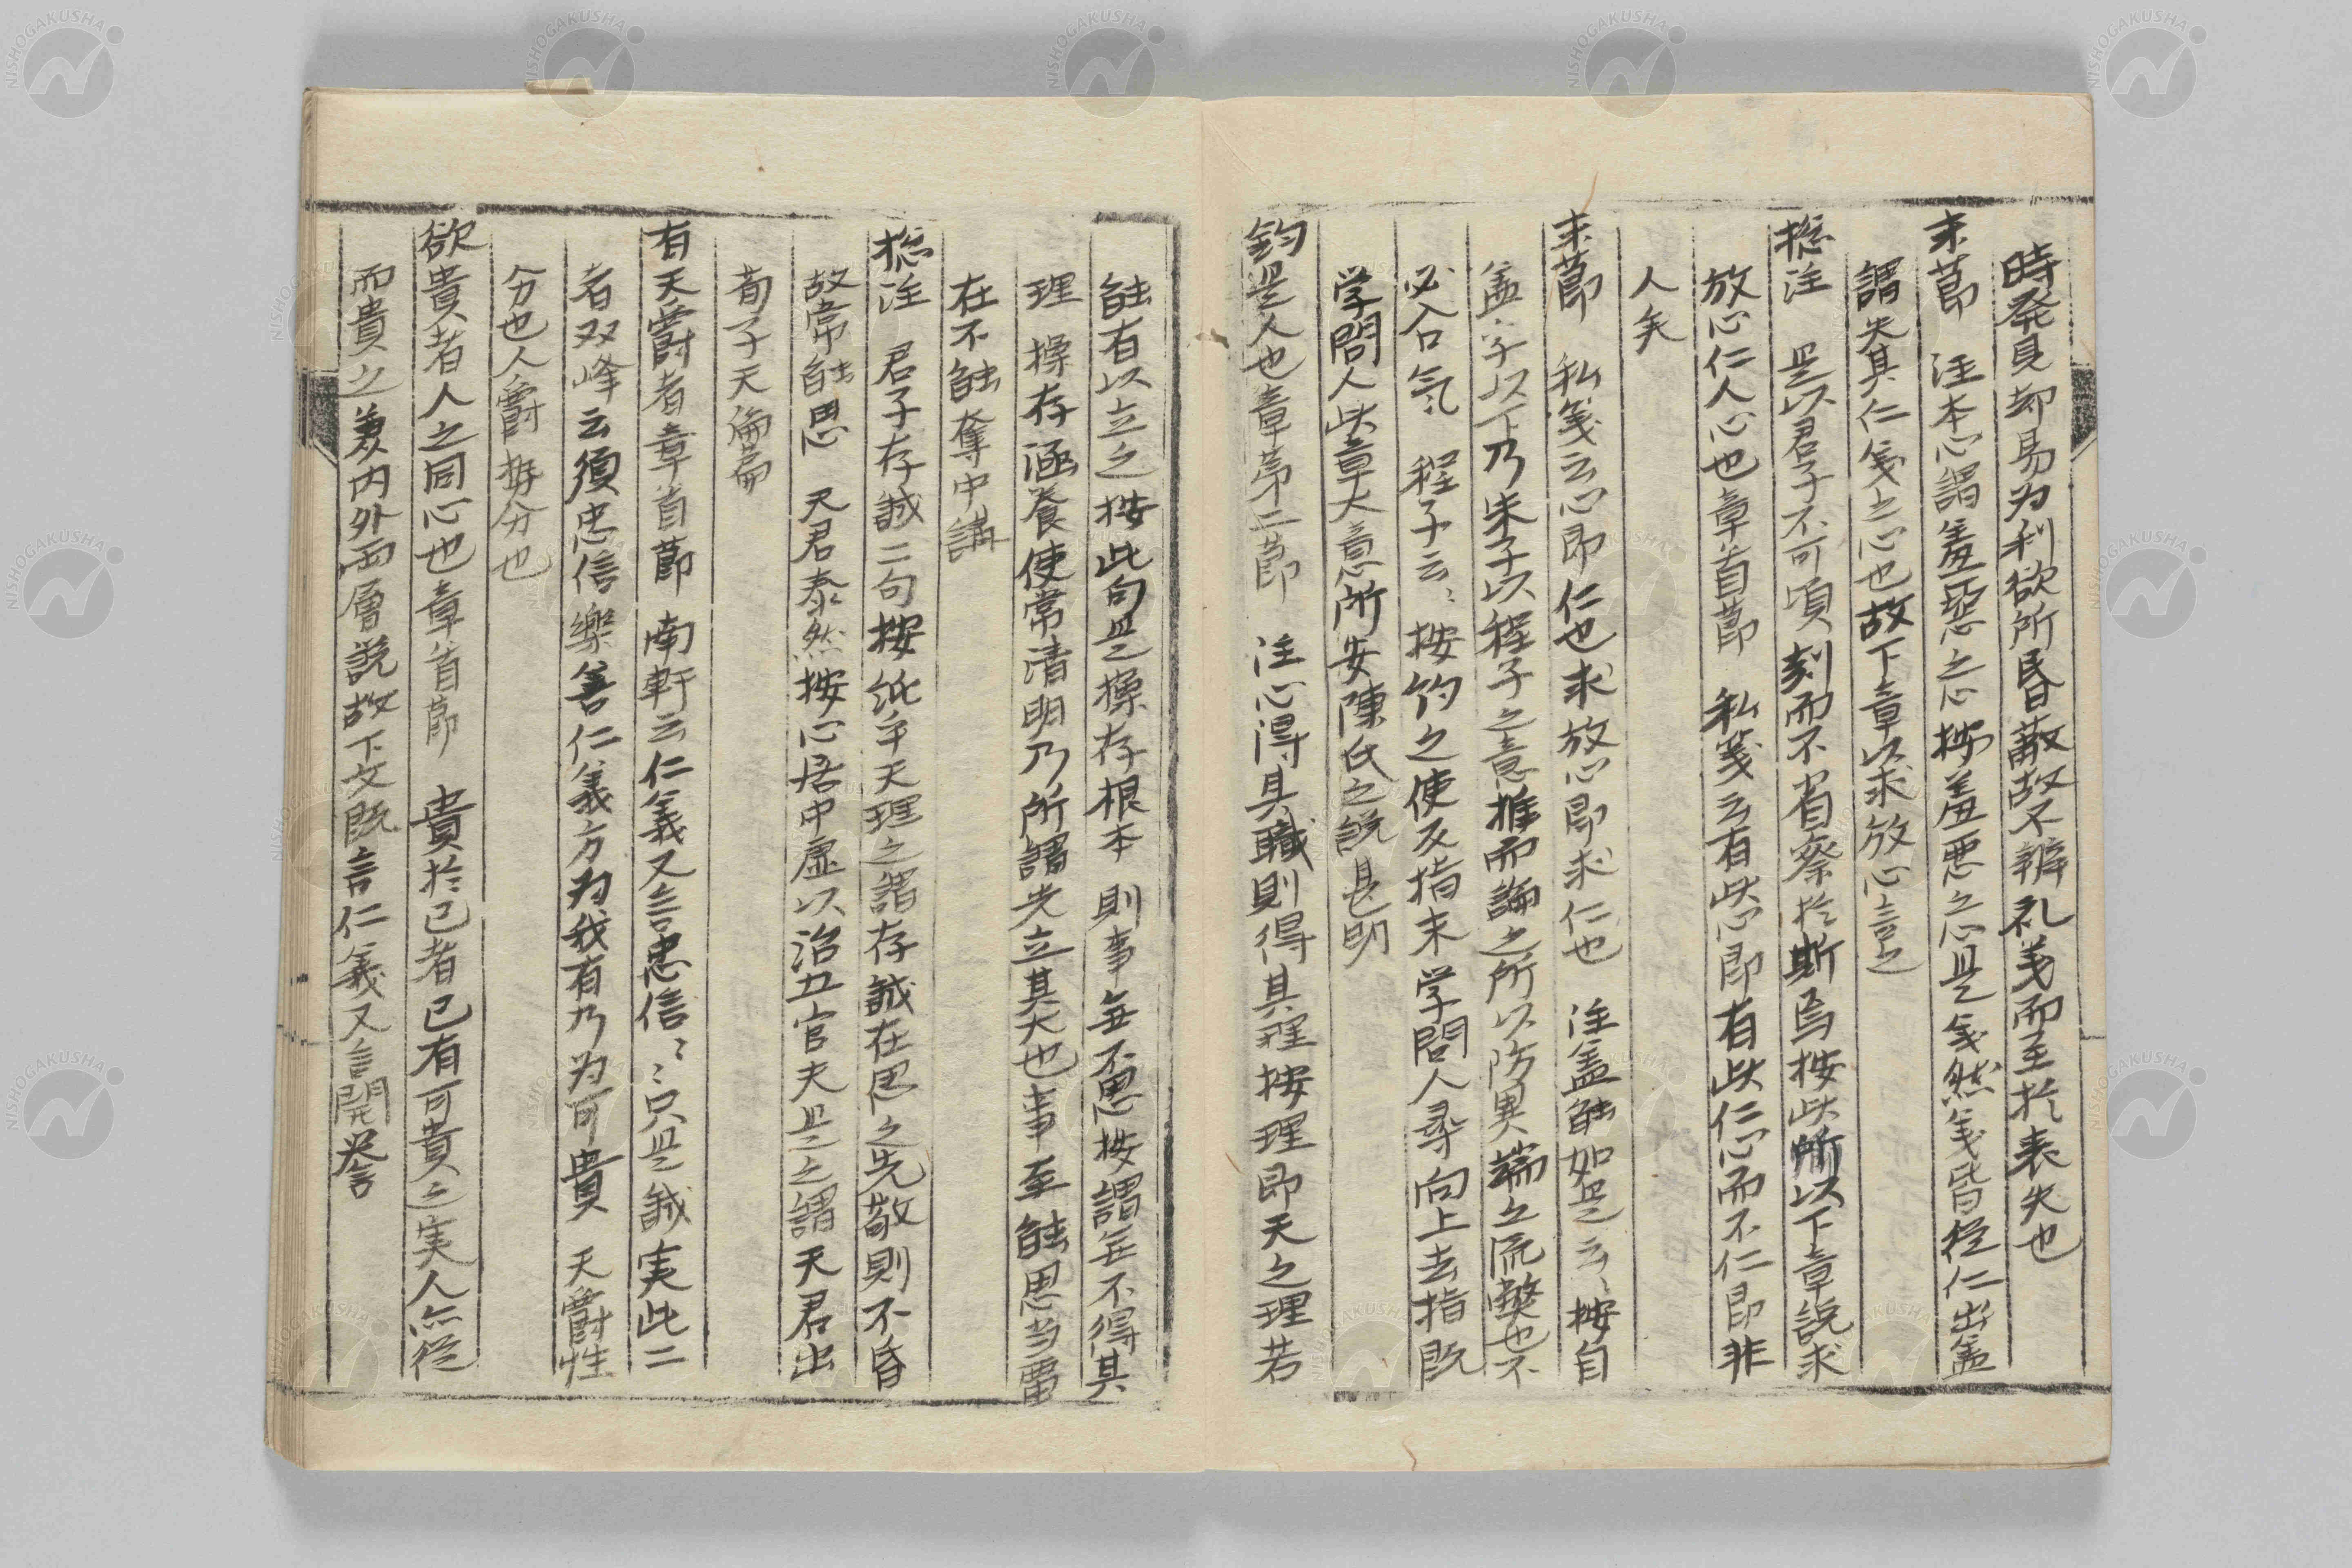 時発見却易为利欲所昏蔽故不辨礼義而至於喪失也
末節　注本心謂羞惡之心按羞悪之心是義然義皆従仁出盖
謂失其仁義之心也故下章以求放心言之
揔注　是以君子不可頃刻而不省察於斯焉按此所以下章説求
放心仁人心也章首節　私箋云有此心即有此仁心而不仁即非
人矣
末節　私箋云心即仁也求放心即求仁也　注盖能如是云々按自
盖字以下乃朱子以程子之意推而論之所以防異端之流弊也不
必入口気　程子云々按約之使反指末学問人尋向上去指既
学問人此章大意所安陳氏之説甚明
鈞是人也章第二節　注心得其職則得其理按理即天之理若
能有以立之按此句是操存根本則事無不思按謂無不得其
理　操存涵養使常清明乃所謂先立其大也事至能思当
在不能奪中講
揔注　君子存誠二句按 天理之謂存誠在思之先敬則不昏
故常能思　天君泰然按心居中虚以治五官夫是之謂天君出
荀子天倫篇
有天爵者章首節　南軒云仁義又言忠信々々只是誠実此二
者双峰云須忠信樂善仁義方为我有乃为可貴　天爵性
分也人爵 分也
欲貴者人之同心也章首節　貴於己者已有可貴之実人亦従
而貴之兼内外両層説故下文既言仁義又言聞誉
NISHOGAKUSHA